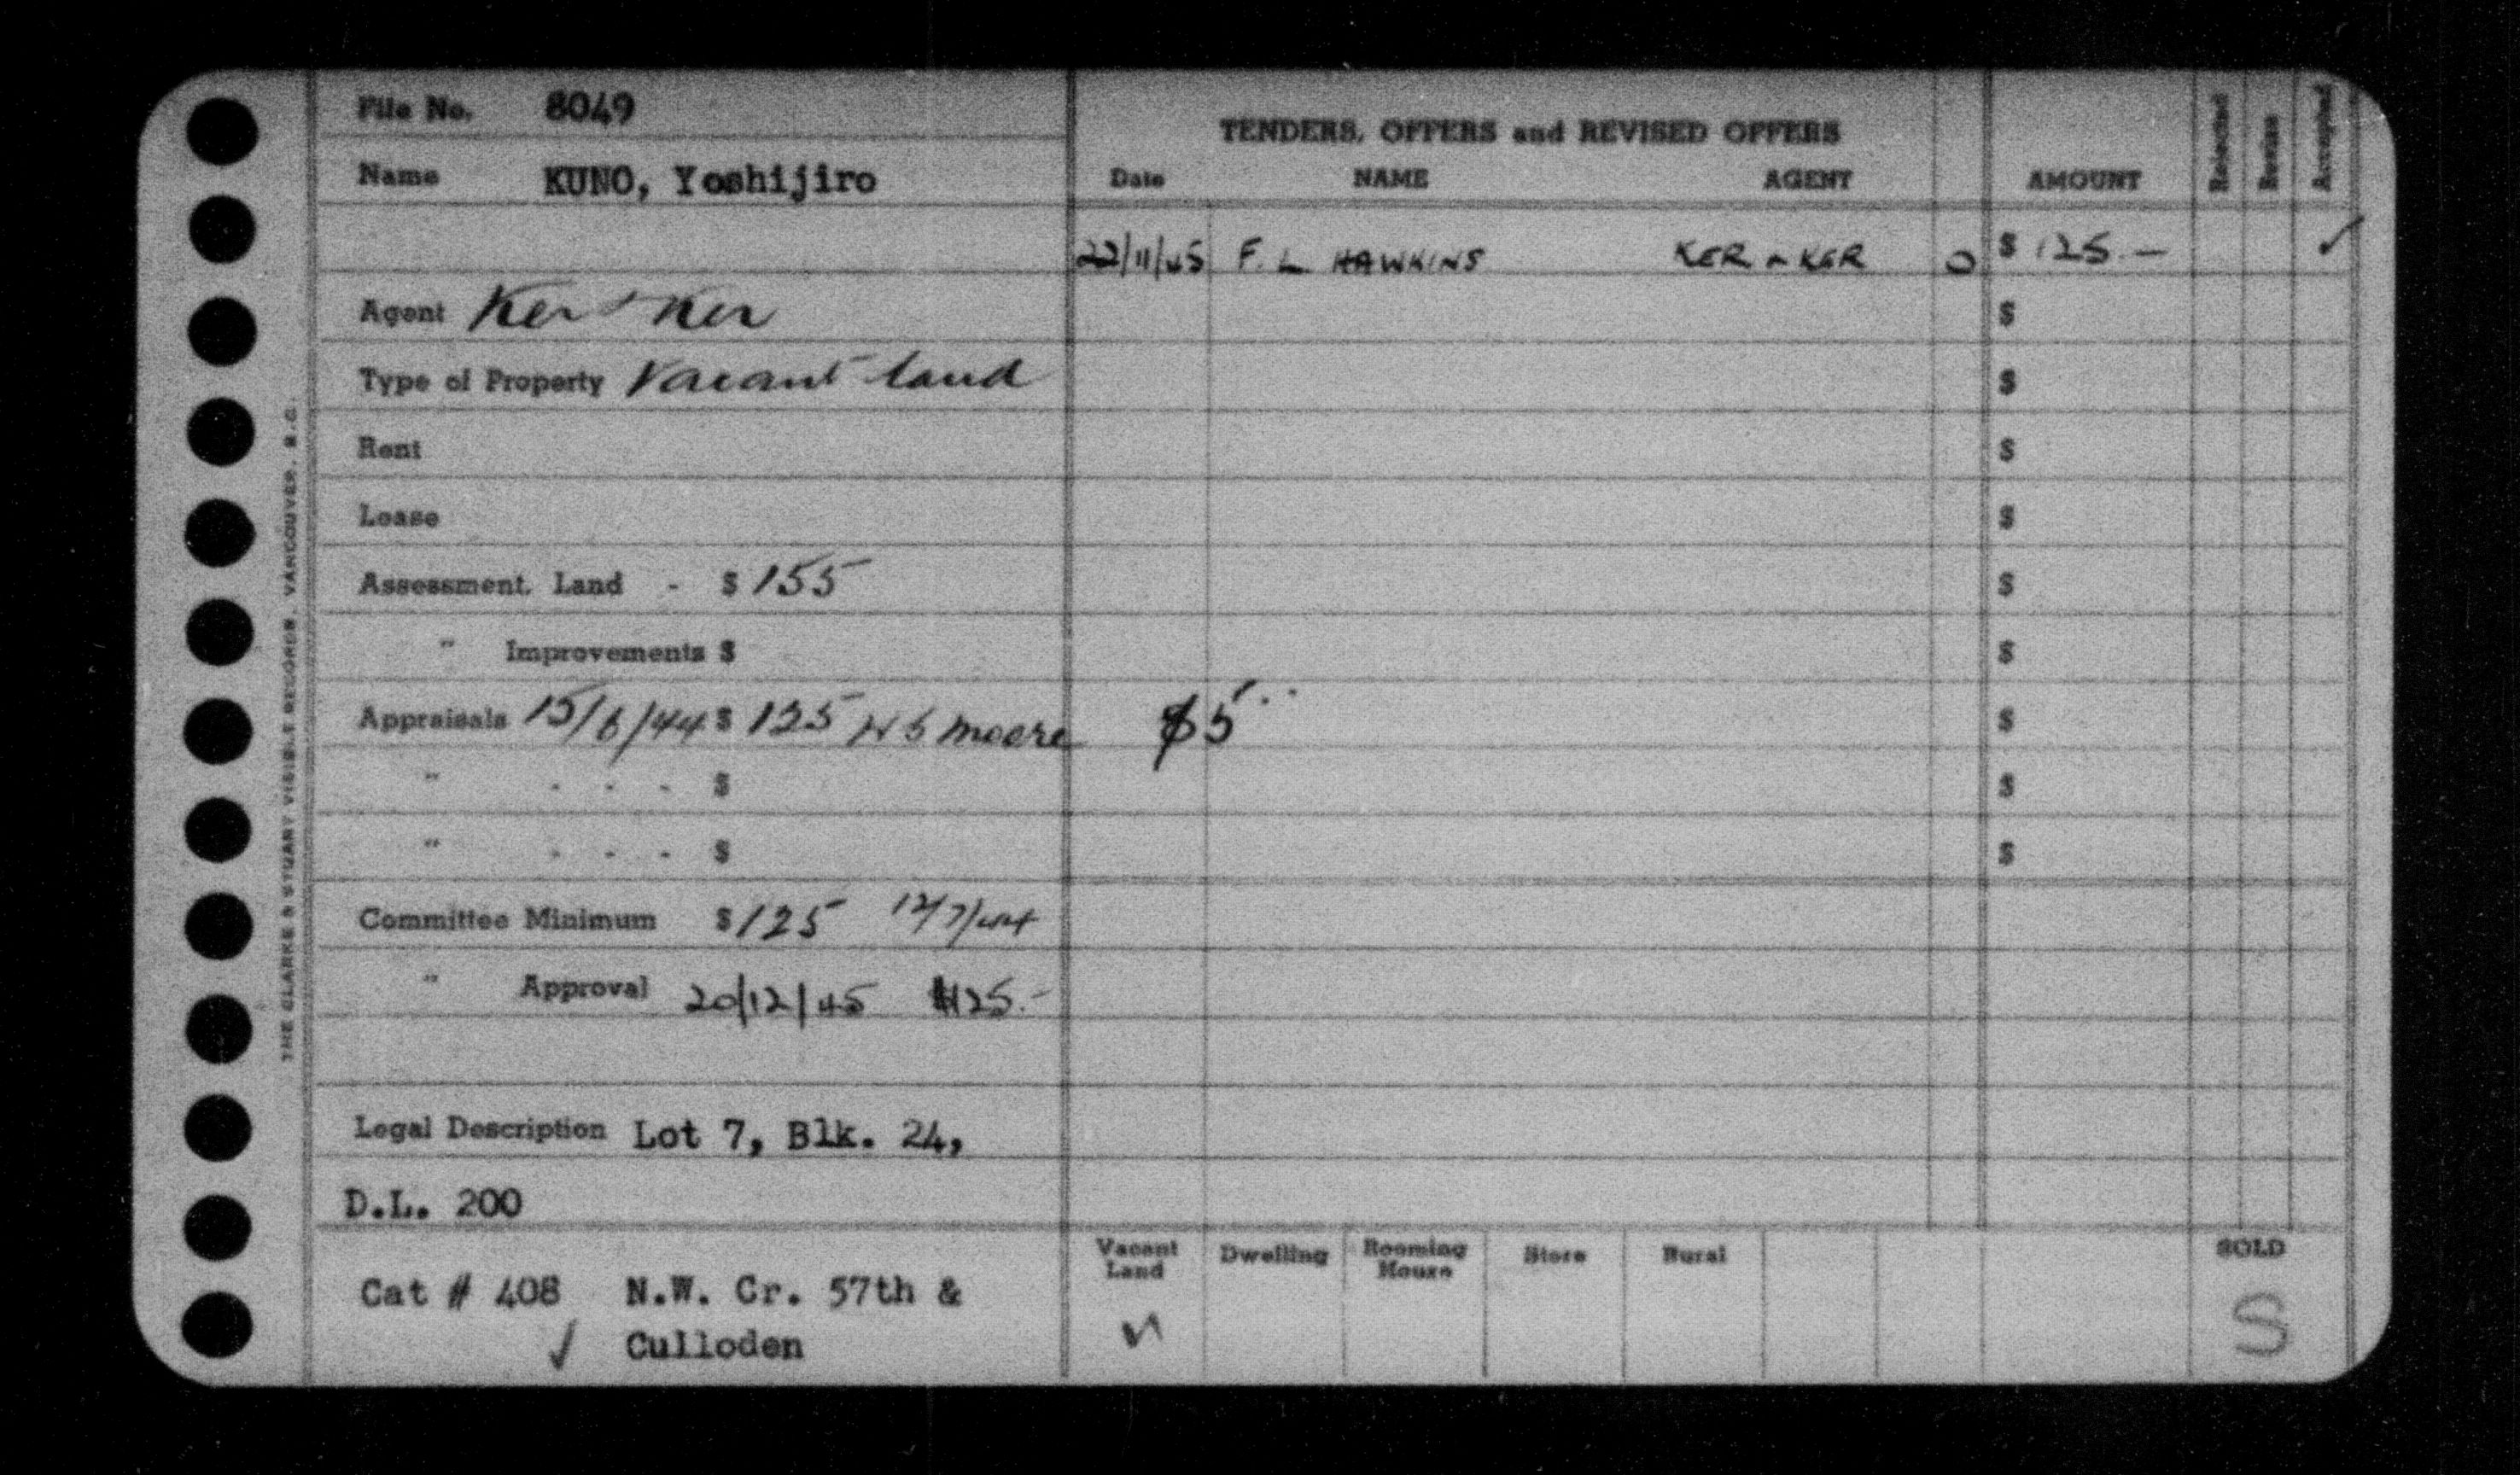 File No. 8049
Name KUNO, Yoshijiro
Agent Ker & Ker
Type of Property Vacant land
Rent
Lease
Assessment. Land - $ 155
" Improvements $
Appraisals 15/6/44 $ 125 W S Moore $5
" - - - $
" - - - $
Committee Minimum $ 125 12/7/44
" Approval 20/12/45 $125.-
Legal Description Lot 7, Blk. 24,
D.L. 200
Cat # 408 N.W. Cr. 57th &
✓ Culloden
THE CLARKE & STUART VISIBLE RECORDS, VANCOUVER, B.C.
TENDERS, OFFERS and REVISED OFFERS
Date NAME AGENT AMOUNT Rejected Revise Accepted
22/11/45 F. L. HAWKINS KER & KER O $ 125.— ✓
$
$
$
$
$
$
$
$
$
Vacant Land Dwelling Rooming House Store Rural SOLD
✓ S